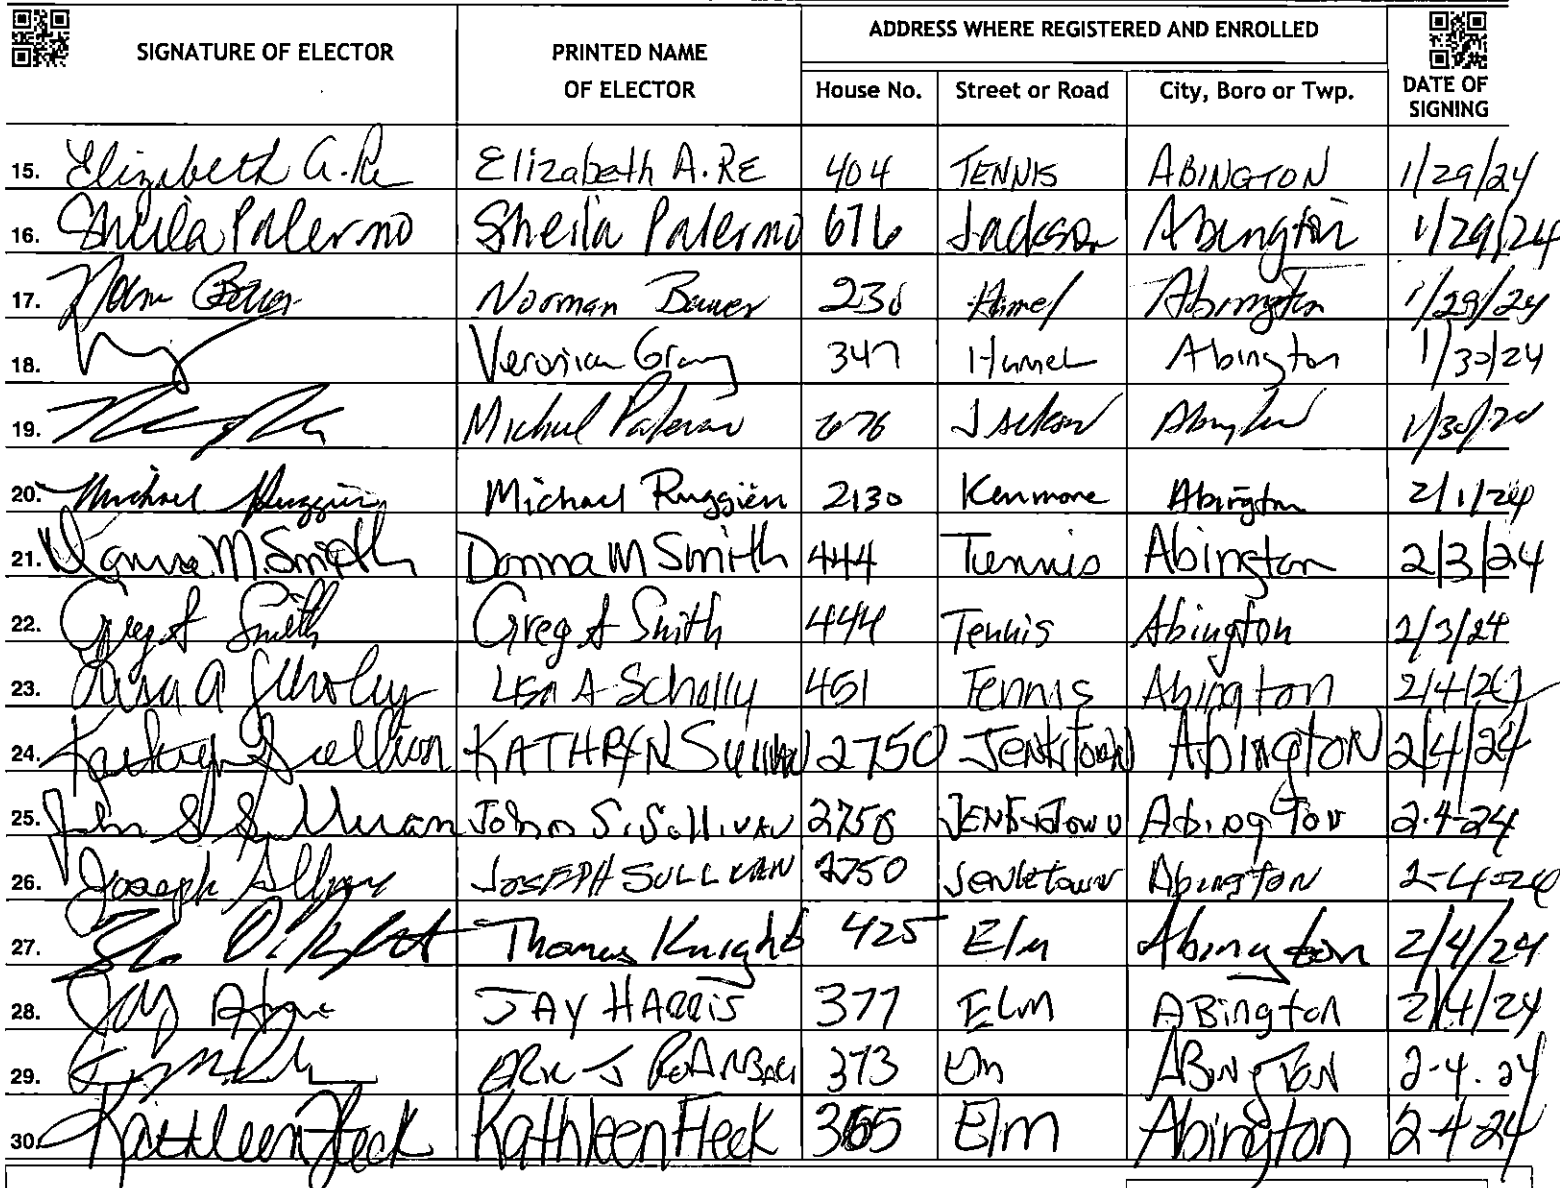 SIGNATURE OF ELECTOR PRINTED NAME OF ELECTOR ADDRESS WHERE REGISTERED AND ENROLLED DATE OF SIGNING
House No. Street or Road City, Boro or Twp.
15. Elizabeth A. Re Elizabeth A. RE 404 TENNIS ABINGTON 1/29/24
16. Sheila Palermo Sheila Palermo 676 Jackson Abington 1/29/24
17. Norman 230 Hamel Abington 1/29/24
18. Veronica Gray 347 Hamel Abington 1/30/24
19. Michael Palermo 676 Jackson Abington 1/30/24
20. Michael Ruggieri Michael Ruggieri 2130 Kenmore Abington 2/1/24
21. Donna M Smith Donna M Smith 444 Tennis Abington 2/3/24
22. Greg A Smith Greg A Smith 444 Tennis Abington 2/3/24
23. Lisa A Scholly Lisa A Scholly 451 Tennis Abington 2/4/24
24. Kathryn Sullivan KATHRYN Sullivan 2750 Jenkintown Abington 2/4/24
25. John S Sullivan John S. Sullivan 2750 Abington 2-4-24
26. Joseph JOSEPH SULLIVAN 2750 Abington 2-4-24
27. Thomas Knight 425 Elm Abington 2/4/24
28. Jay JAY HARRIS 377 ELm ABington 2/4/24
29. 373 Elm ABINGTON 2-4.24
30. Kathleen Heck Kathleen Heck 365 Elm Abington 2-4-24